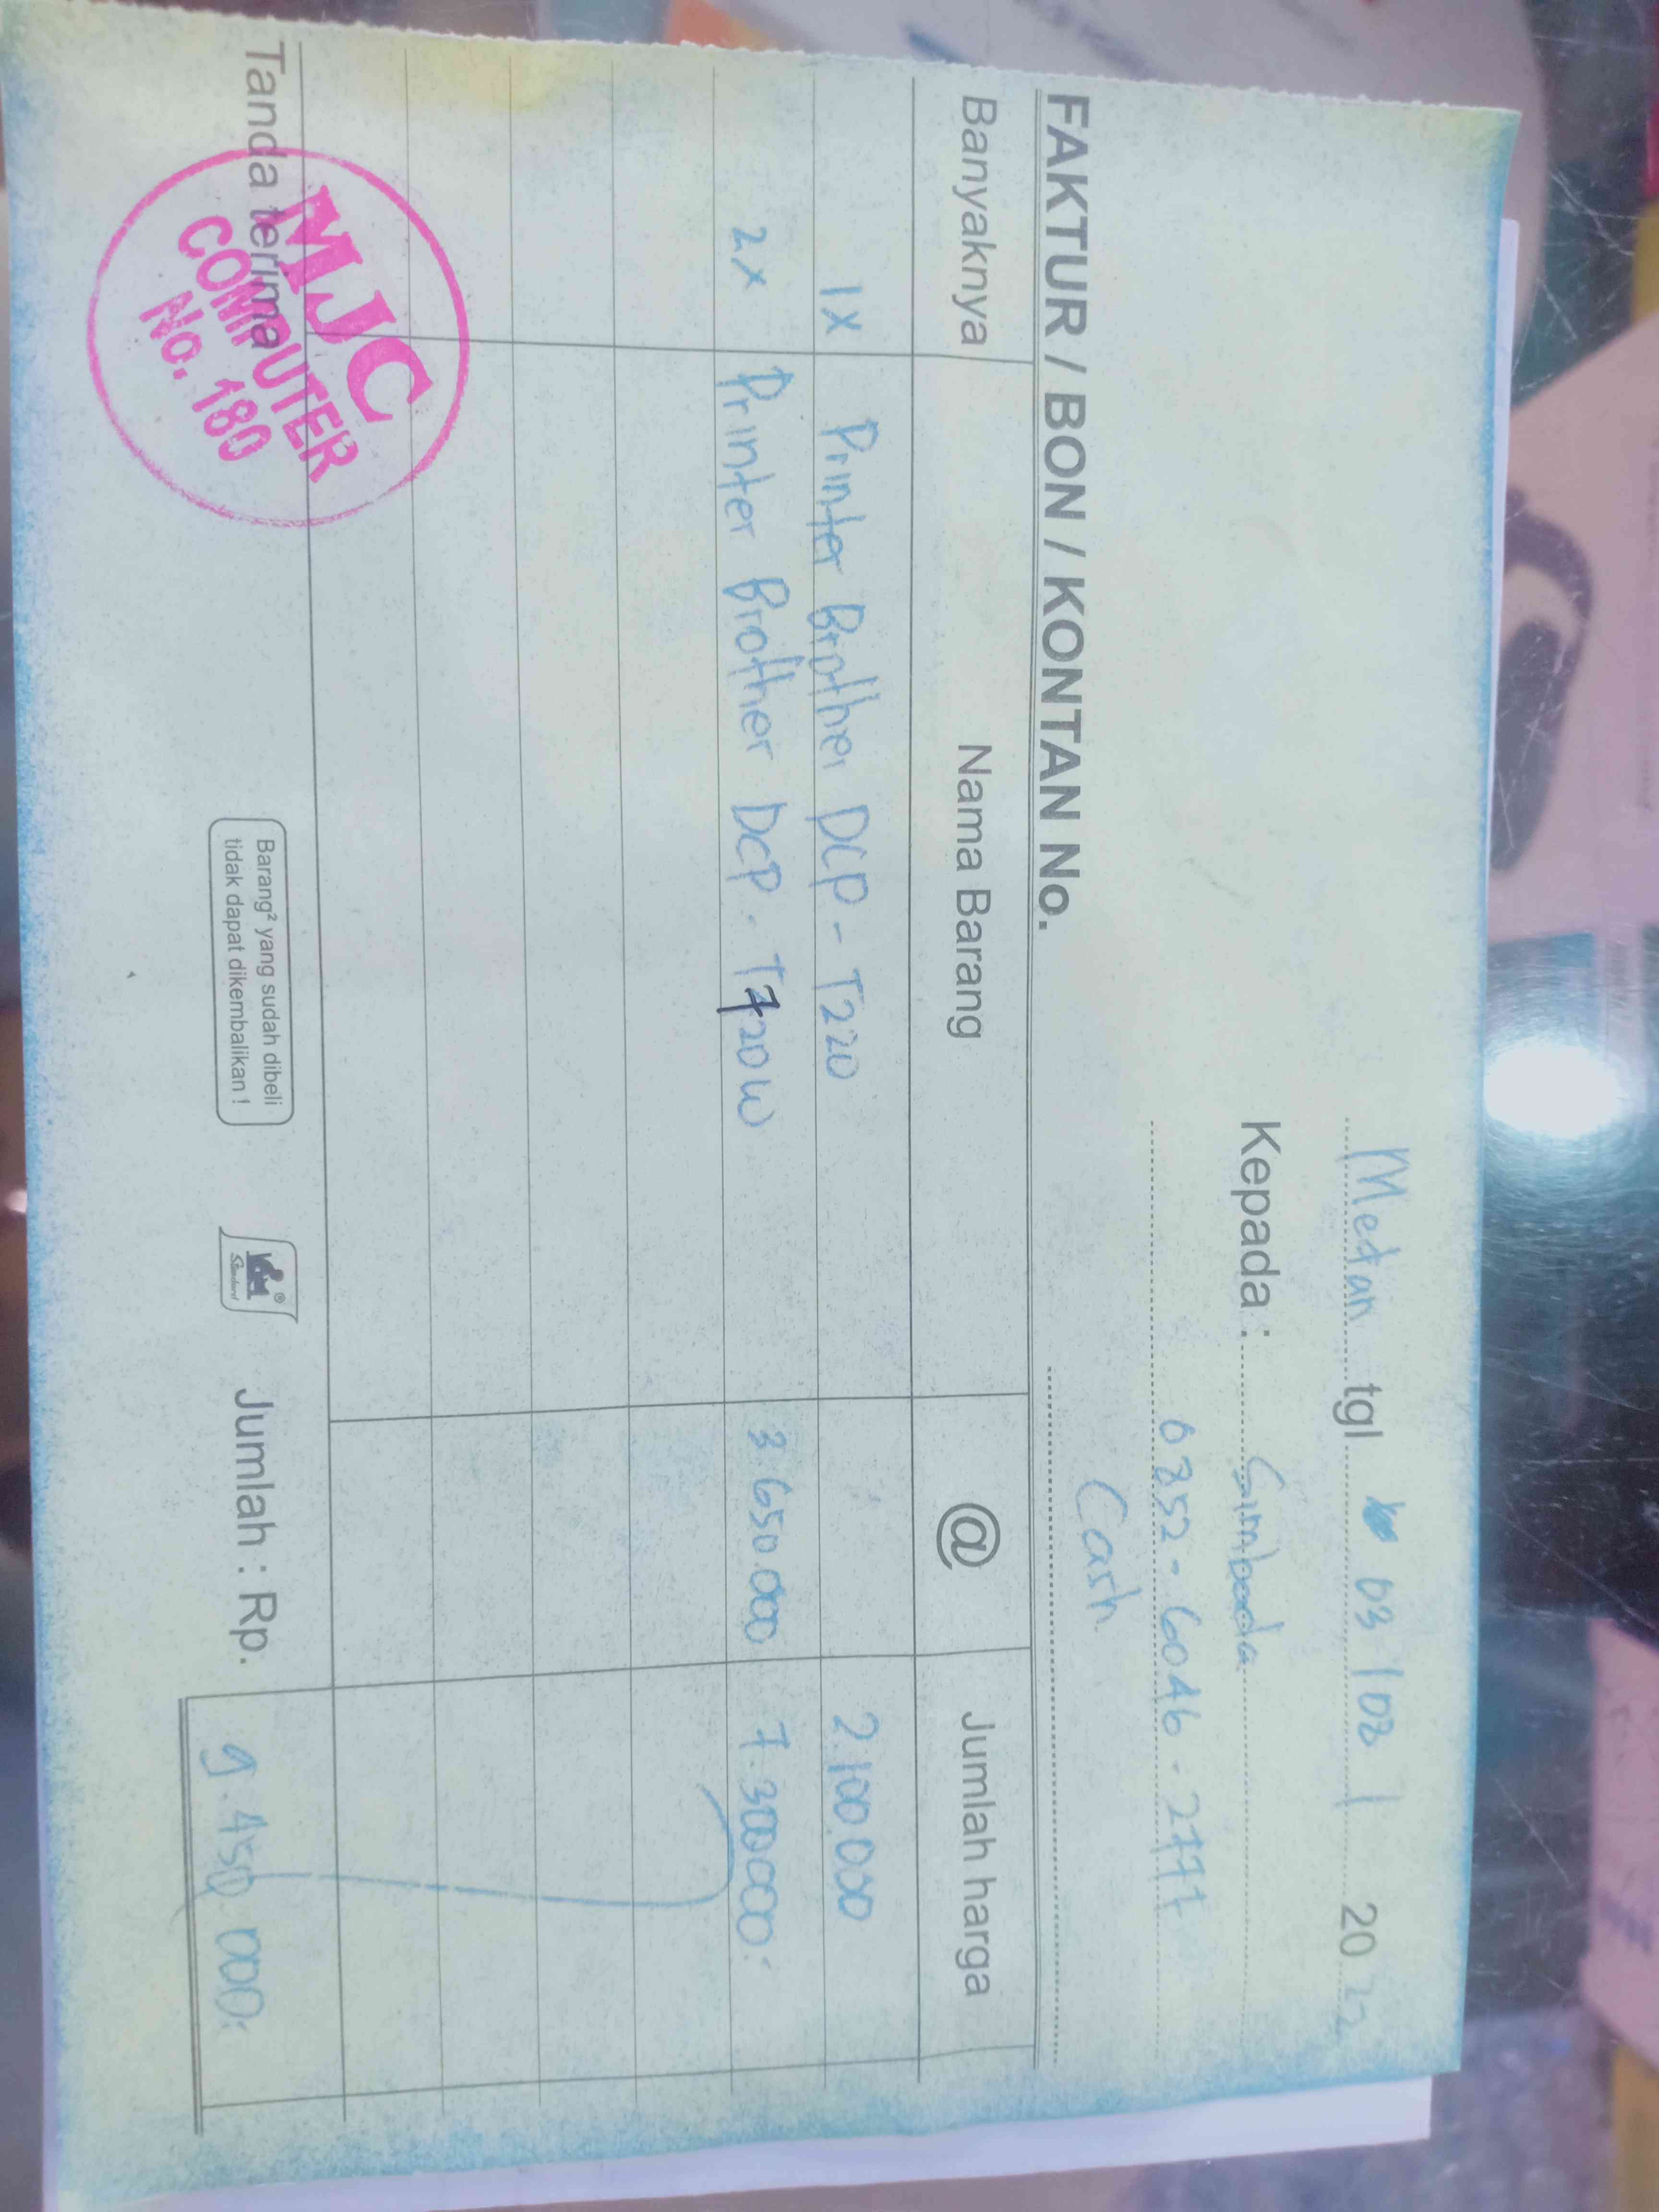 Medan tgl 03 / 02 / 2022
Kepada : Simbada
0852 - 6046 - 2777
Cash
FAKTUR / BON / KONTAN No.
Banyaknya Nama Barang @ Jumlah harga
1x Printer Brother DCP - T220 2.100.000
2x Printer Brother DCP - T720W 3.650.000 7.300.000.
Tanda terima Jumlah : Rp. 9.450.000.
MJC
COMPUTER
No. 180
Barang² yang sudah dibeli
tidak dapat dikembalikan !
Standard